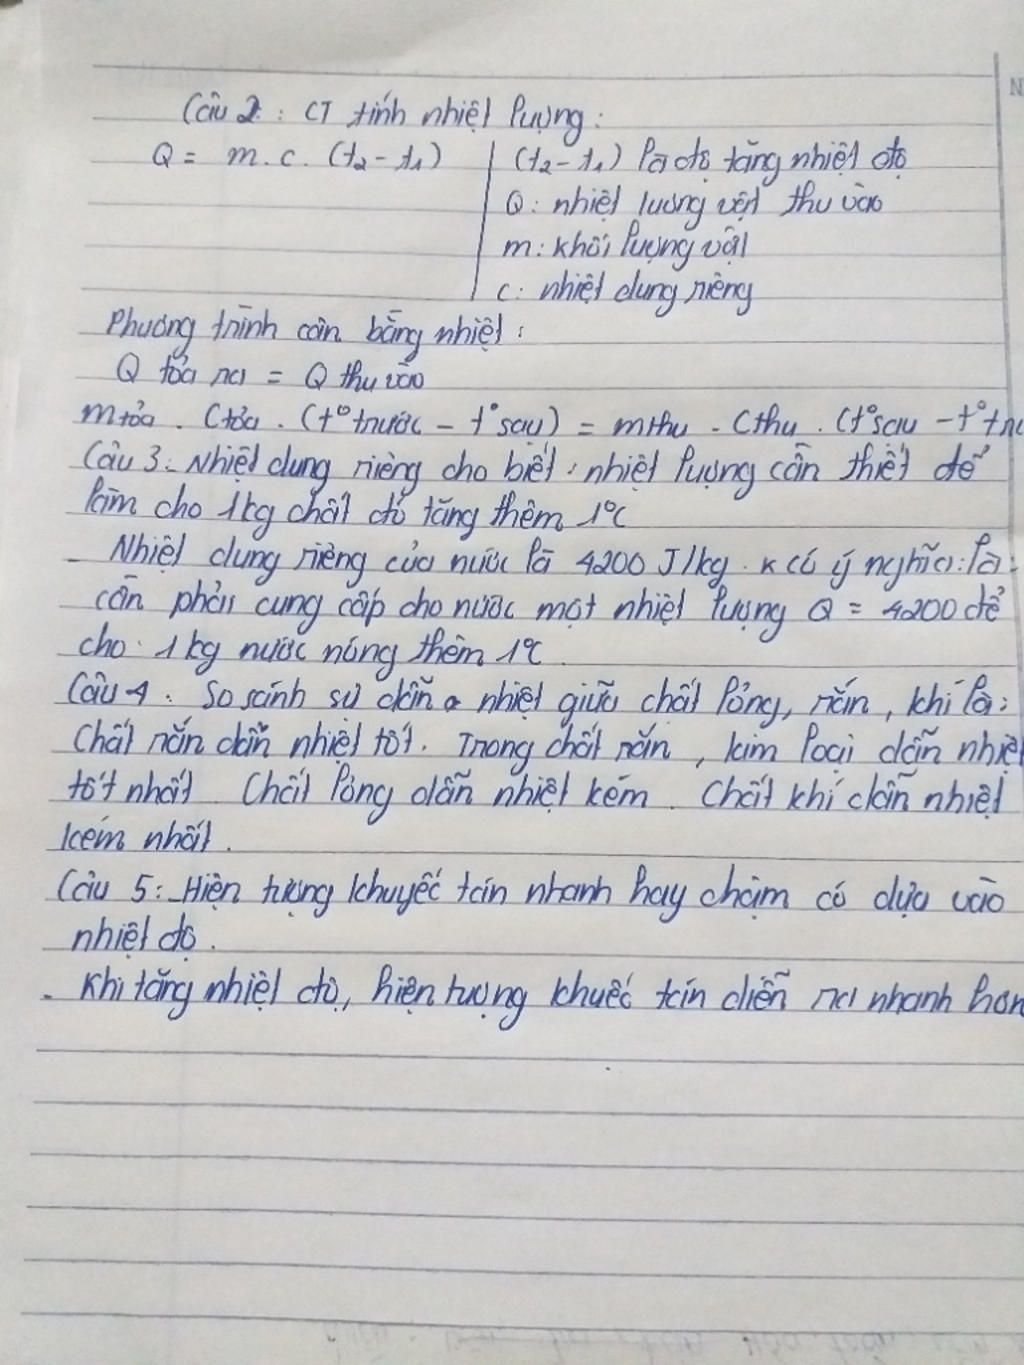 Câu 2: CT tính nhiệt lượng:
Q = m.c.(t₂-t₁)
(t₂-t₁) là độ tăng nhiệt độ
Q: nhiệt lương vật thu vào
m: khối lượng vật
c: nhiệt dung riêng
Phương trình cân bằng nhiệt:
Q tỏa ra = Q thu vào
m tỏa . C tỏa . (t° trước - t° sau) = m thu . C thu . (t° sau - t° trư
Câu 3: Nhiệt dung riêng cho biết: nhiệt lượng cần thiết để
làm cho 1kg chất đó tăng thêm 1°C
- Nhiệt dung riêng của nước là 4200 J/kg.K có ý nghĩa: là:
cần phải cung cấp cho nước một nhiệt lượng Q = 4200 để
cho 1kg nước nóng thêm 1°C.
Câu 4: So sánh sự dẫn nhiệt giữa chất lỏng, rắn, khí là:
Chất rắn dẫn nhiệt tốt. Trong chất rắn, kim loại dẫn nhiệt
tốt nhất. Chất lỏng dẫn nhiệt kém. Chất khí dẫn nhiệt
kém nhất.
Câu 5: Hiện tượng khuyếc tán nhanh hay chậm có dựa vào
nhiệt độ.
- Khi tăng nhiệt độ, hiện tượng khuếc tán diễn ra nhanh hơn